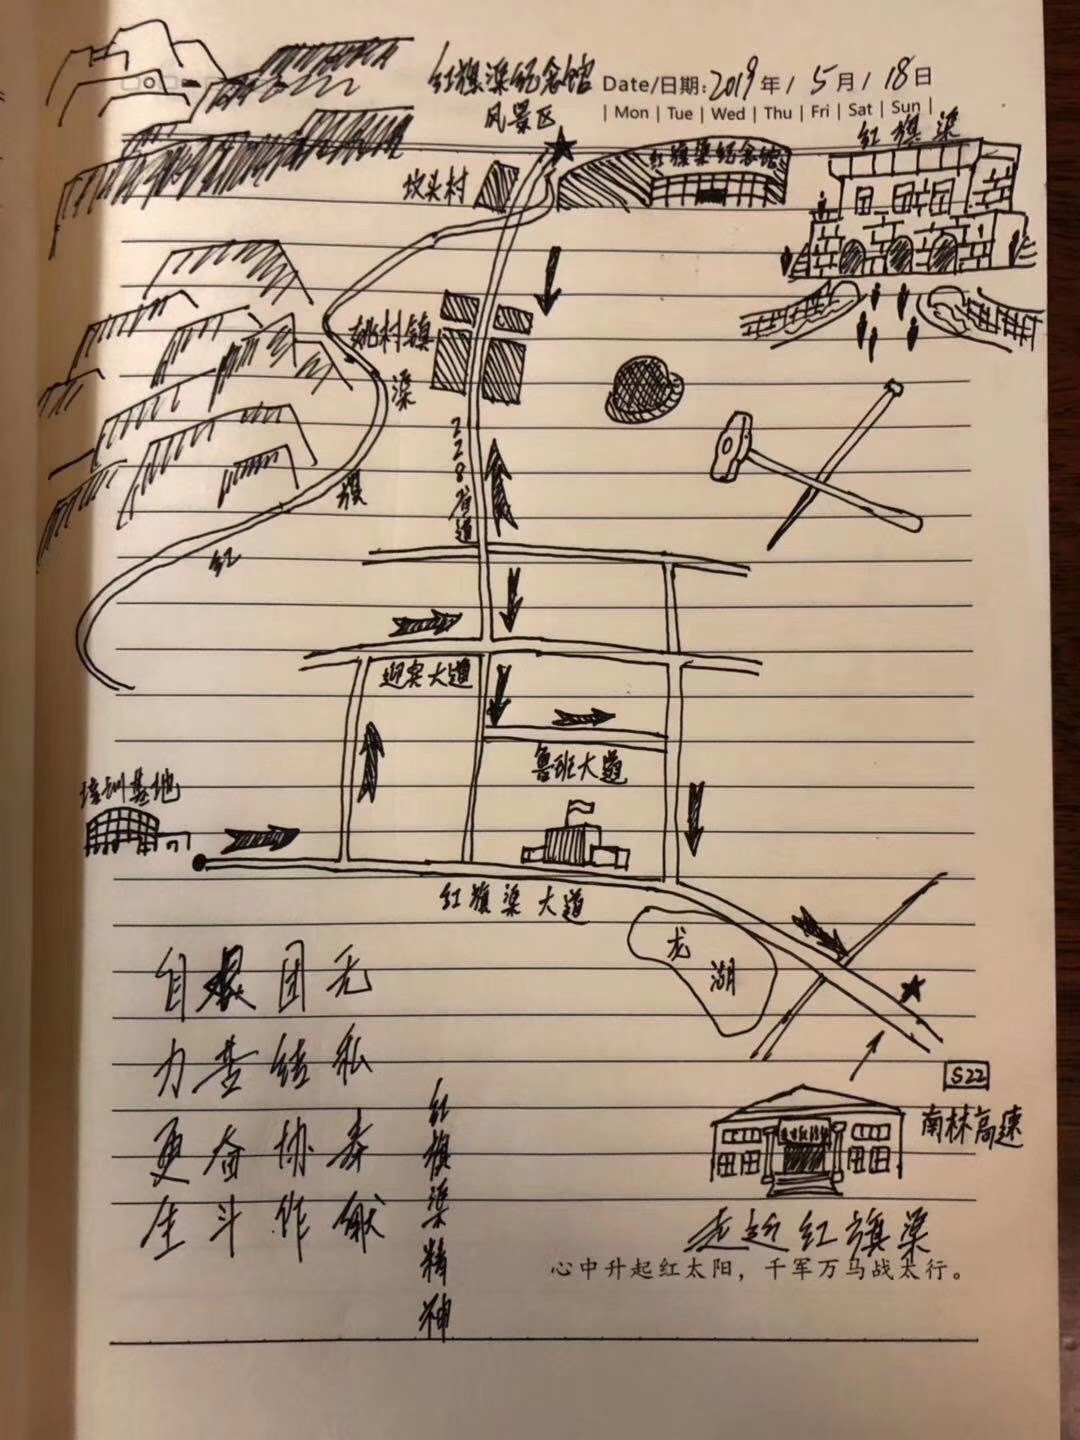 红旗渠纪念馆
风景区
Date/日期: 2019年 / 5月 / 18日
| Mon | Tue | Wed | Thu | Fri | Sat | Sun |
红旗渠
红旗渠纪念馆
坟头村
姚村镇
228省道
红旗渠
迎宾大道
鲁班大道
培训基地
红旗渠大道
龙湖
自力更生
艰苦奋斗
团结协作
无私奉献
红旗渠精神
S22
南林高速
走近红旗渠
心中升起红太阳，千军万马战太行。